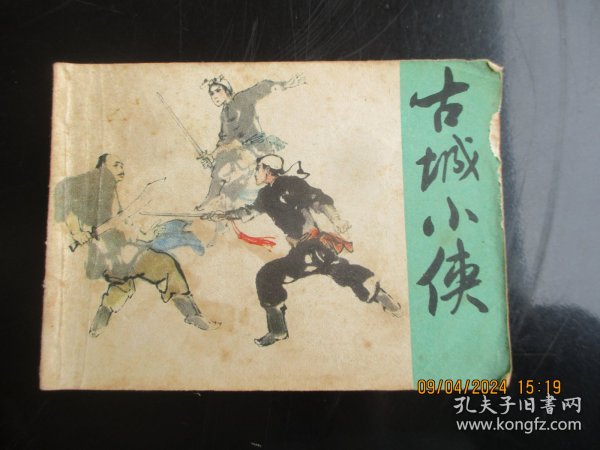 古城小侠
09/04/2024 15:19
孔夫子旧書网
www.kongfz.com